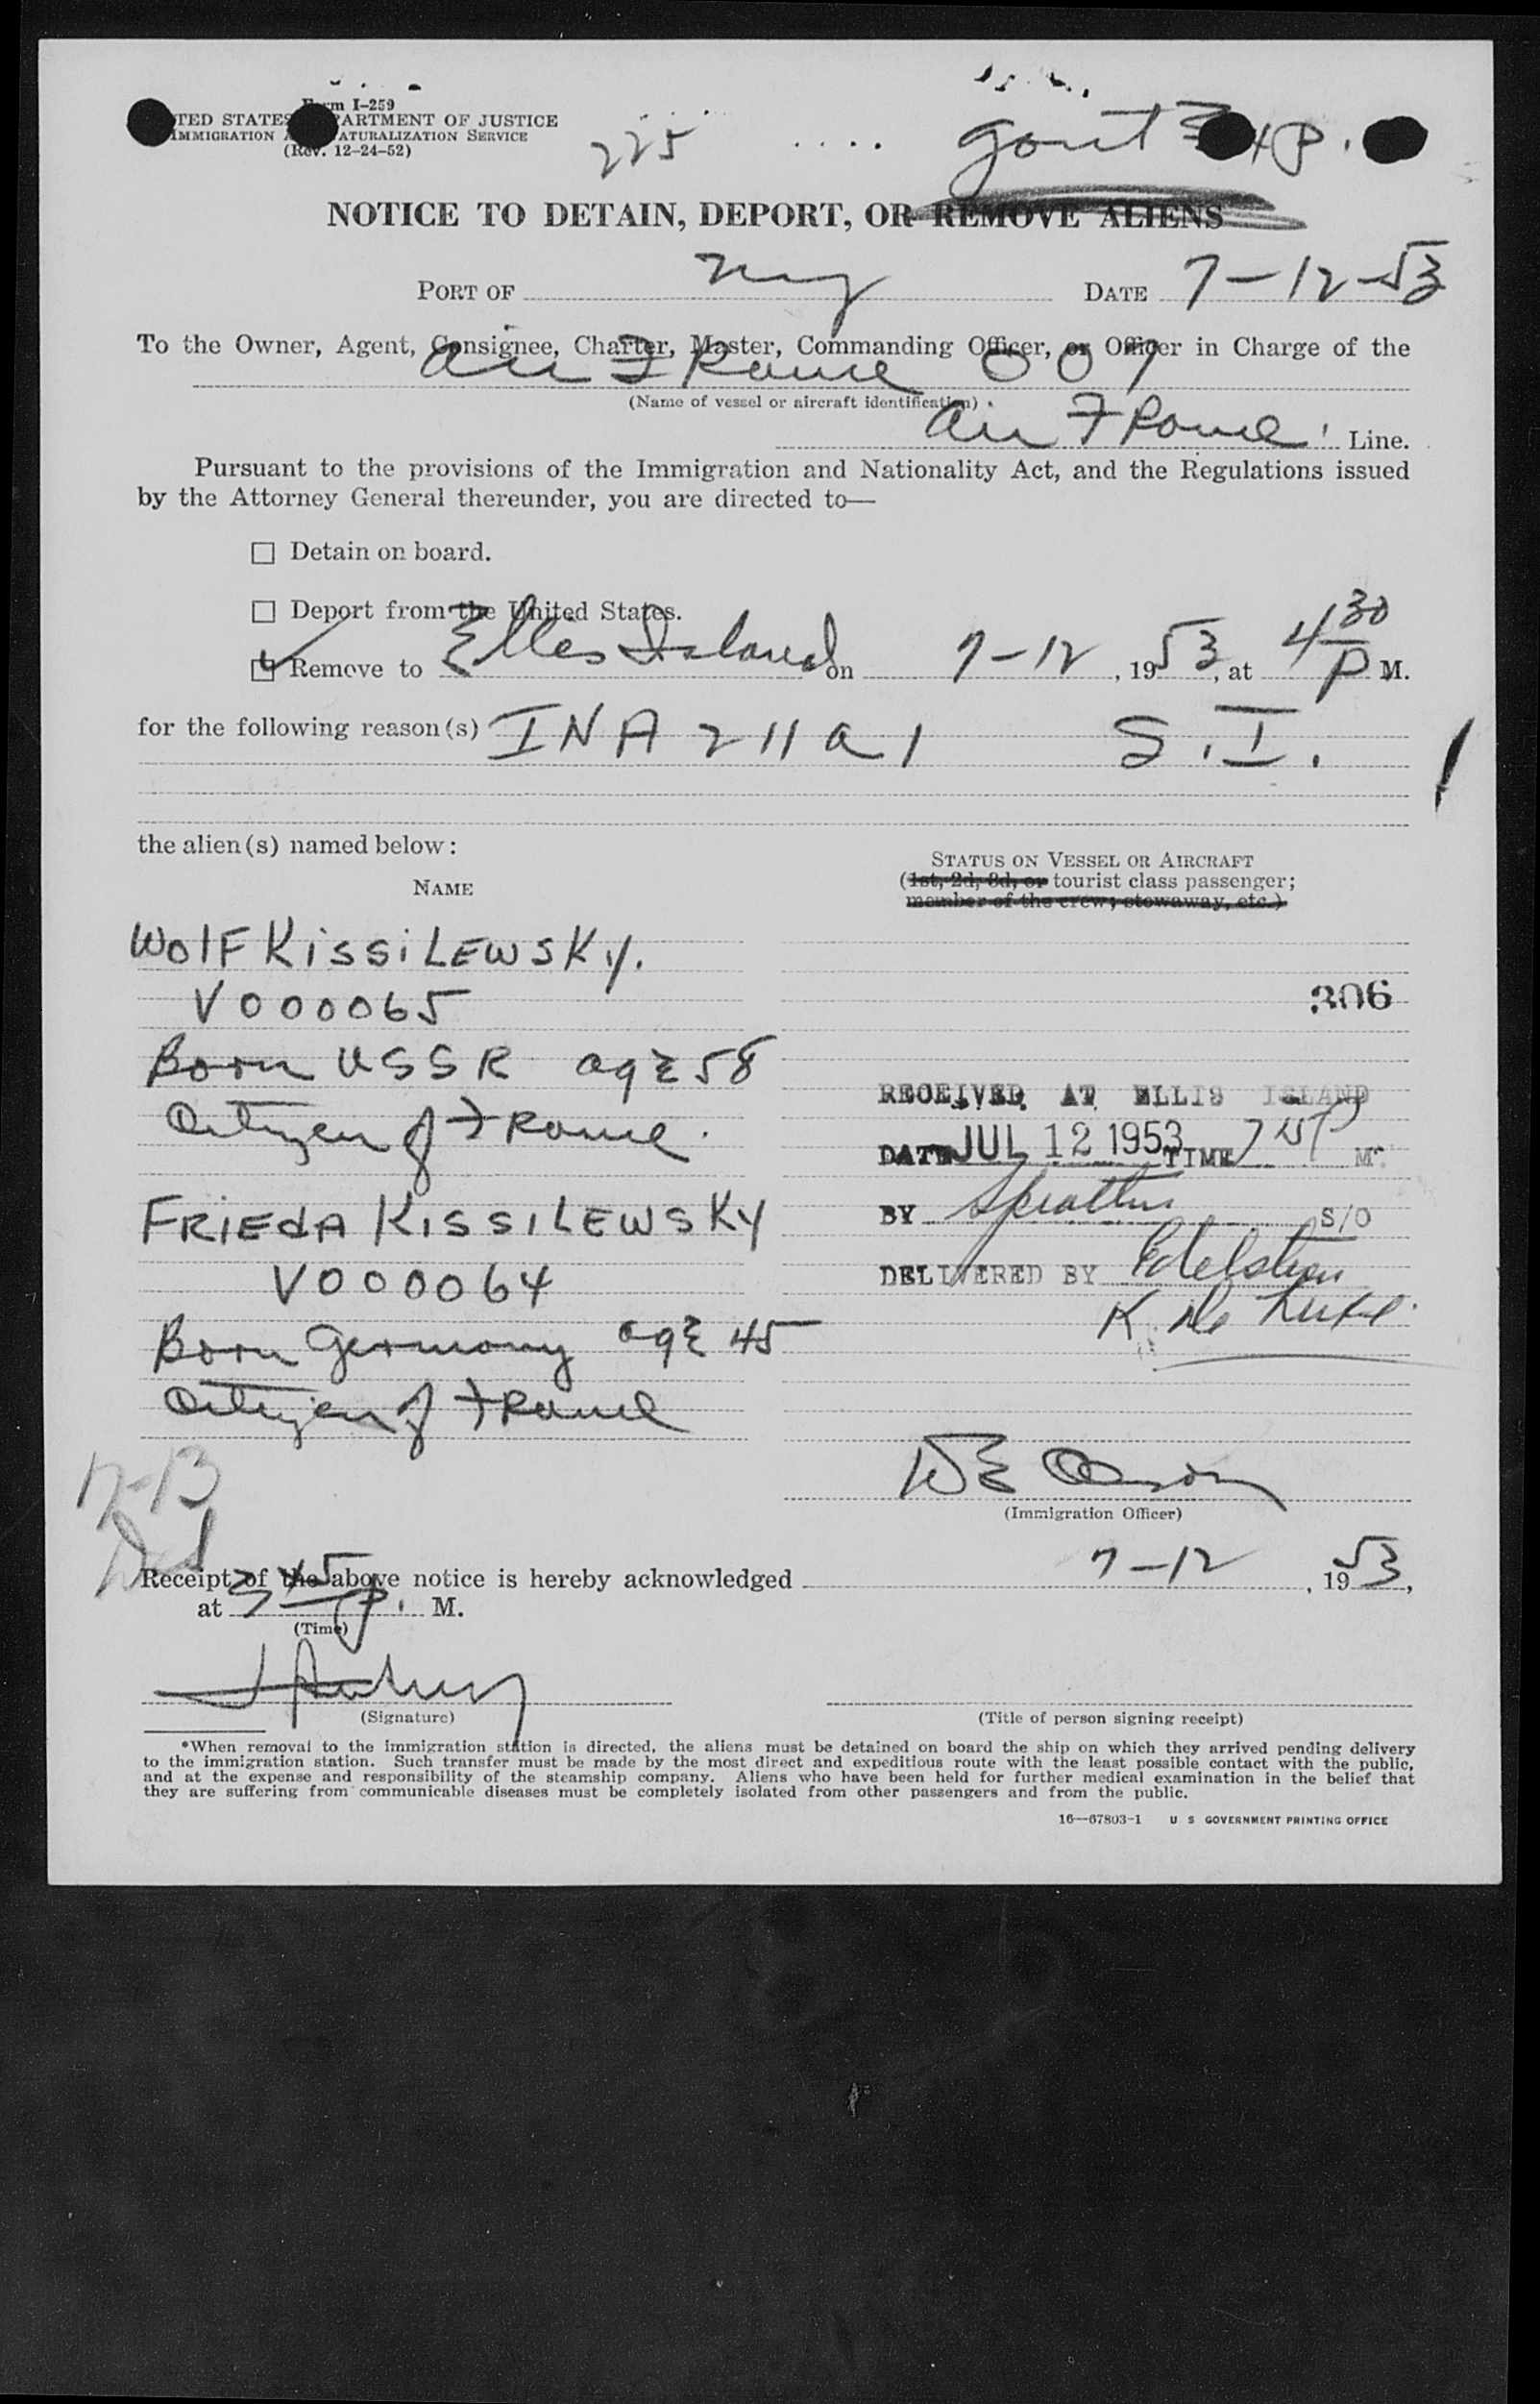 Form I-259
UNITED STATES DEPARTMENT OF JUSTICE
IMMIGRATION AND NATURALIZATION SERVICE
(Rev. 12-24-52)
225
Gout Exp.
NOTICE TO DETAIN, DEPORT, OR REMOVE ALIENS
PORT OF NY DATE 7-12-53
To the Owner, Agent, Consignee, Charter, Master, Commanding Officer, or Officer in Charge of the
Air France 009
(Name of vessel or aircraft identification)
Air France Line.
Pursuant to the provisions of the Immigration and Nationality Act, and the Regulations issued
by the Attorney General thereunder, you are directed to—
Detain on board.
Deport from the United States.
Remove to Ellis Island on 7-12, 1953, at 4 30 P M.
for the following reason(s) INA 211 a 1 S.I.
the alien(s) named below:
NAME
STATUS ON VESSEL OR AIRCRAFT
(1st, 2d, 3d, or tourist class passenger;
member of the crew; stowaway, etc.)
WOLF KISSILEWSKY.
V000065
306
Born USSR age 58
Citizen of France.
RECEIVED AT ELLIS ISLAND
DATE JUL 12 1953 TIME 7 P M.
BY S/O
FRIEDA KISSILEWSKY
V000064
DELIVERED BY Edelstein
K. De Luxe
Born Germany age 45
Citizen of France
7-13
Del
W E Olson
(Immigration Officer)
Receipt of the above notice is hereby acknowledged 7-12, 1953,
at 3 45 P. M.
(Time)
(Signature)
(Title of person signing receipt)
*When removal to the immigration station is directed, the aliens must be detained on board the ship on which they arrived pending delivery
to the immigration station. Such transfer must be made by the most direct and expeditious route with the least possible contact with the public,
and at the expense and responsibility of the steamship company. Aliens who have been held for further medical examination in the belief that
they are suffering from communicable diseases must be completely isolated from other passengers and from the public.
16—67803-1 U S GOVERNMENT PRINTING OFFICE